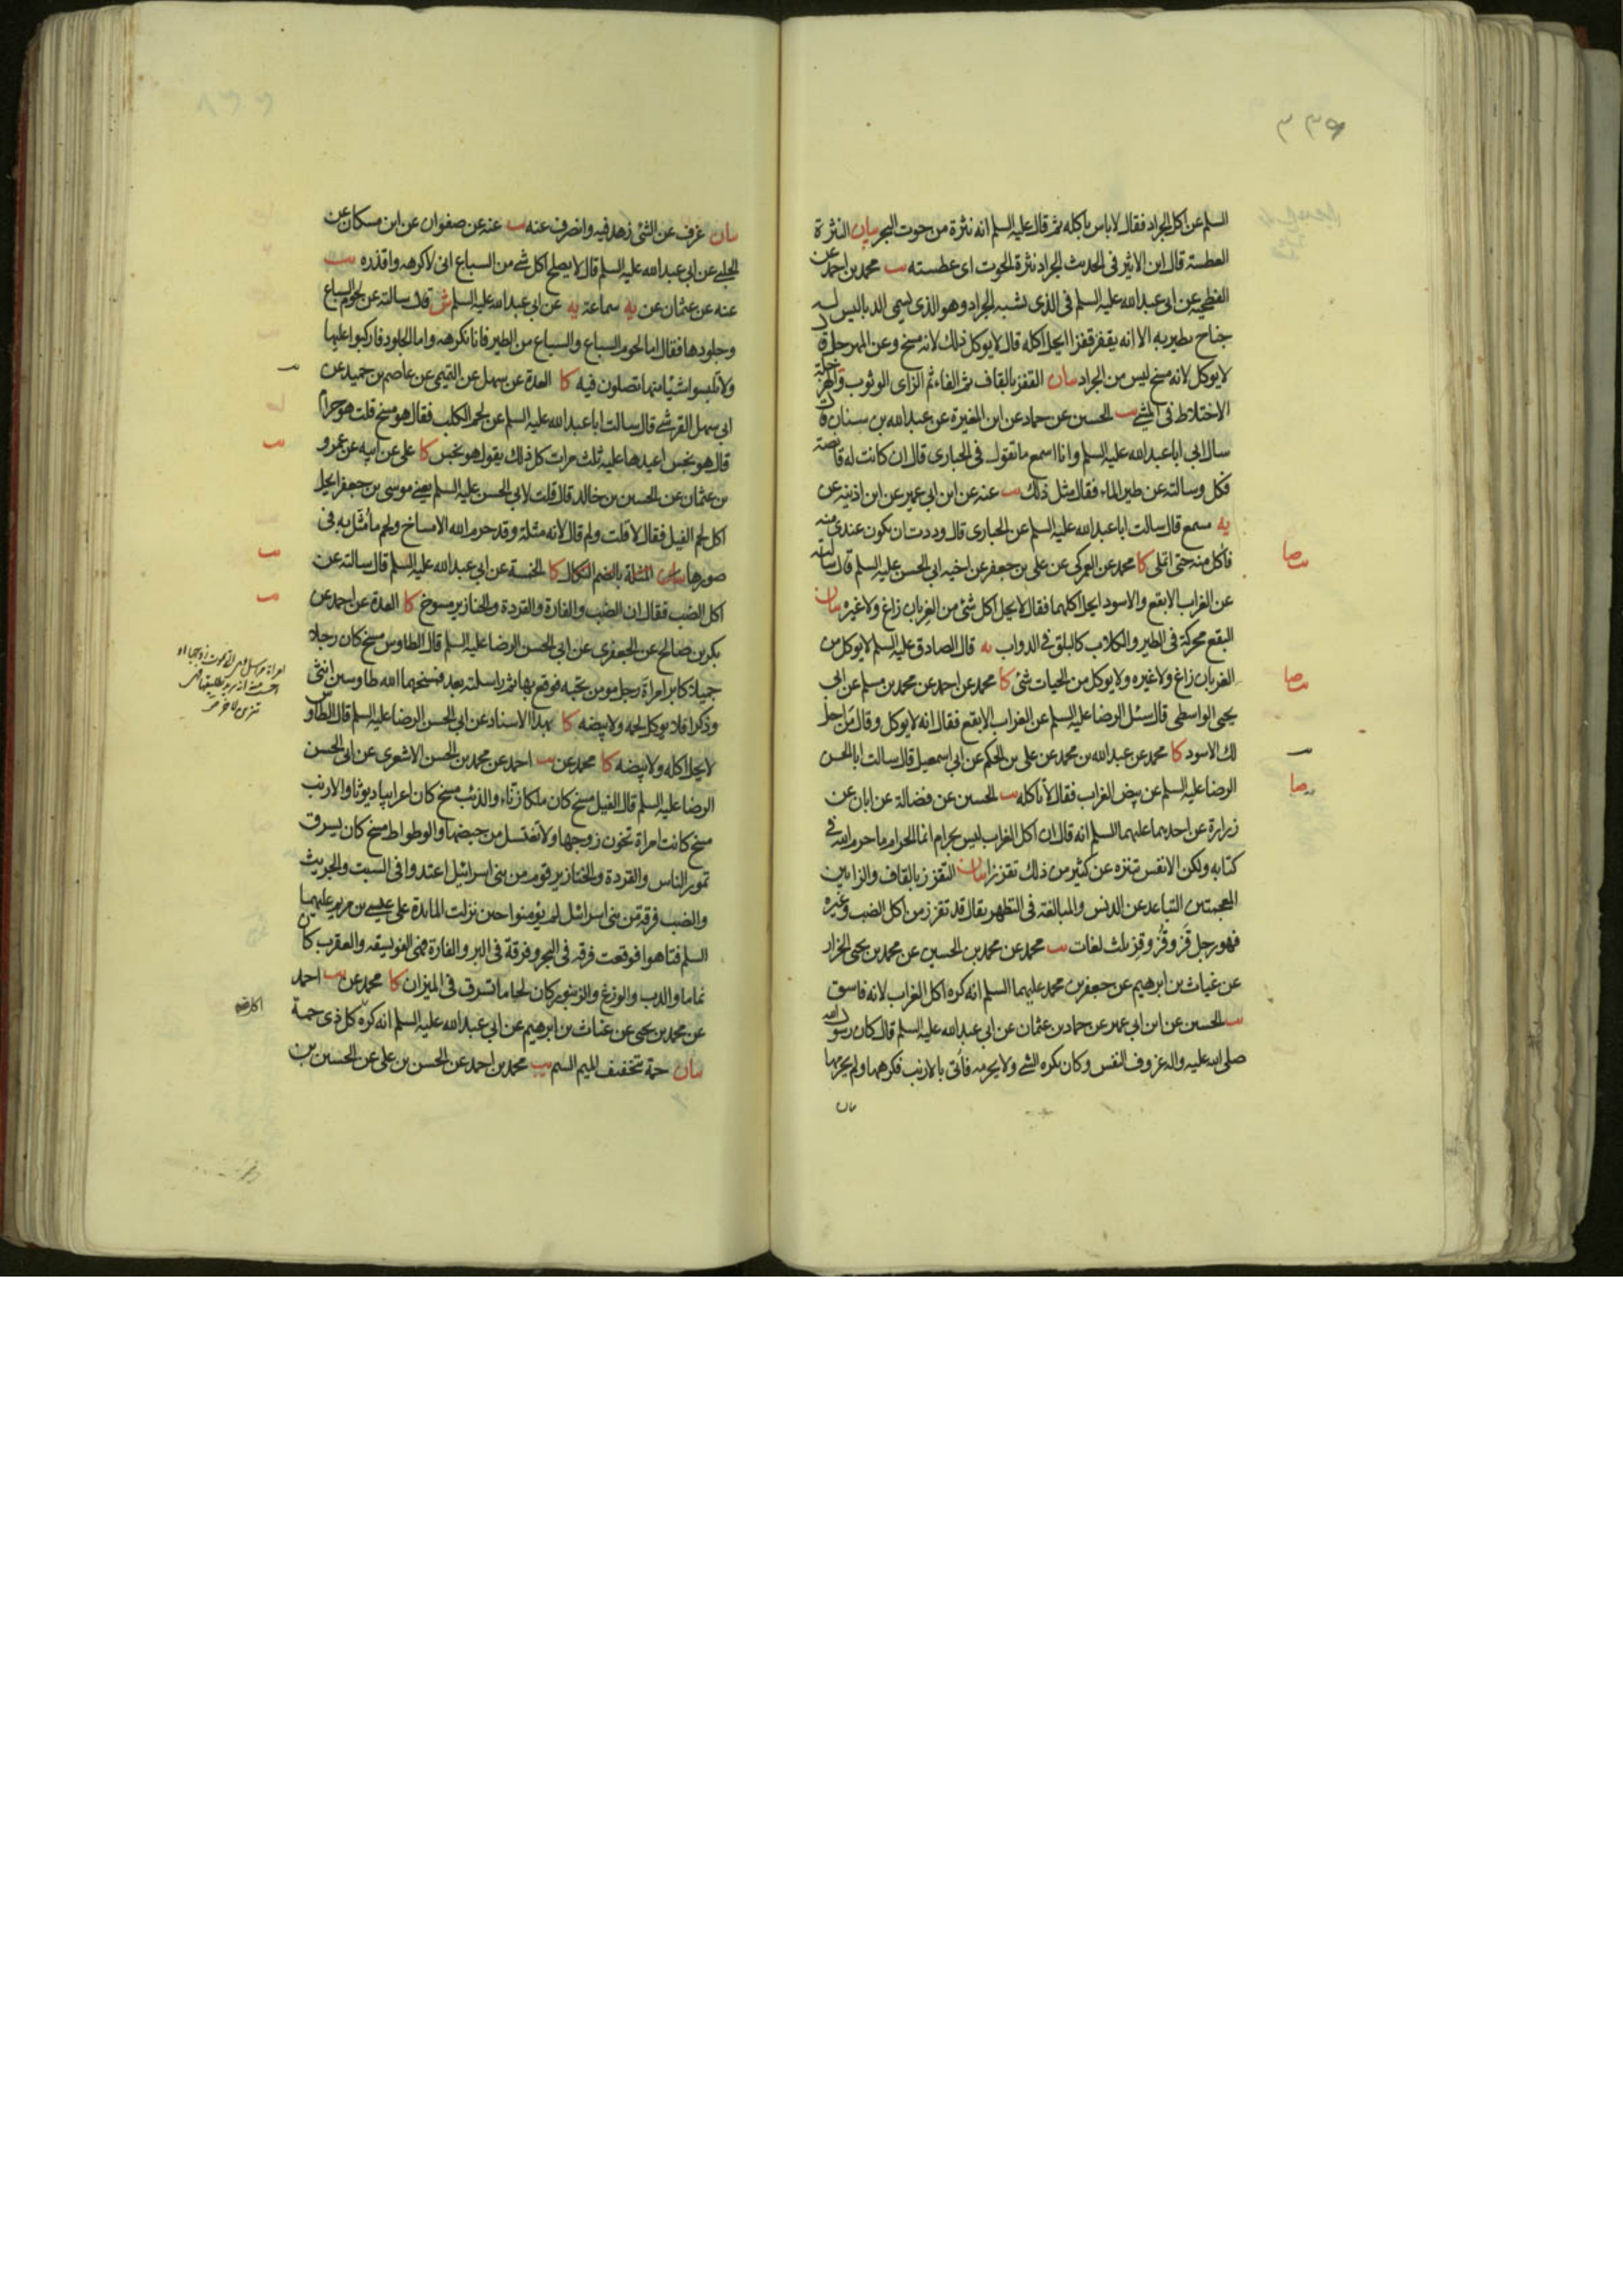 ٣٣٩
السلم عن اكل الجراد فقال لا باس باكله ثم قال عليه السلم انه نثرة من حوت البحر بيان النثرة
العطسة قال ابن الاثير فى الحديث الجراد نثرة الحوت اى عطسته يب محمد بن احمد عن
الفطحية عن ابى عبد الله عليه السلم فى الذى يشبه الجراد وهو الذى يسمى الدبا ليس له
جناح يطير به الا انه يقفز قفزا ايحل اكله قال لا يوكل ذلك لانه مسخ وعن المهرجل
لا يوكل لانه مسخ ليس من الجراد بيان القفز بالقاف ثم الفاء ثم الزاى الوثوب
الاختلاط فى المشى يب الحسين عن حماد عن ابن المغيرة عن عبد الله بن سنان
سال ابى ابا عبد الله عليه السلم وانا اسمع ما تقول فى الحبارى قال ان كانت له قانصة
فكل وسالته عن طير الماء فقال مثل ذلك يب عنه عن ابن ابى عمير عن ابن اذينه عن
يه مسمع قال سالت ابا عبد الله عليه السلم عن الحبارى قال وددت ان يكون عندى منه
فاكل منه حتى اتملى كا محمد عن العمركى عن على بن جعفر عن اخيه ابى الحسن عليه السلم قال سالته
عن الغراب الابقع والاسود ايحل اكلهما فقال لا يحل اكل شئ من الغربان زاغ ولا غيره بيان
البقع محركة فى الطير والكلاب كالبلق فى الدواب يه قال الصادق عليه السلم لا يوكل من
الغربان زاغ ولا غيره ولا يوكل من الحيات شئ كا محمد عن احمد عن محمد بن مسلم عن ابى
يحيى الواسطى قال سئل الرضا عليه السلم عن الغراب الابقع فقال انه لا يوكل وقال من احل
لك الاسود كا محمد عن عبد الله بن محمد عن على بن الحكم عن ابى اسمعيل قال سالت ابا الحسن
الرضا عليه السلم عن بيض الغراب فقال لا تاكله يب الحسين عن فضالة عن ابان عن
زرارة عن احدهما عليهما السلم انه قال ان اكل الغراب ليس بحرام انما الحرام ما حرم الله فى
كتابه ولكن الانفس تتنزه عن كثير من ذلك تقززا بيان التقزز بالقاف والزايين
المعجمتين التباعد عن الدنس والمبالغة فى التطهر يقال قد تقزز من اكل الضب وغيره
فهو رجل قز وقز وقز ثلث لغات يب محمد عن محمد بن الحسين عن محمد بن يحيى الخزاز
عن غياث بن ابرهيم عن جعفر بن محمد عليهما السلم انه كره اكل الغراب لانه فاسق
يب الحسين عن ابن ابى عمير عن حماد بن عثمان عن ابى عبد الله عليه السلم قال كان رسول الله
صلى الله عليه واله عزوف النفس وكان يكره الشئ ولا يحرمه فاتى بالارنب فكرهها ولم يحرمها
بيان
يب صا
يب صا
يب
يب صا
بيان عزف عن الشئ زهد فيه وانصرف عنه يب عنه عن صفوان عن ابن مسكان عن
الحلبى عن ابى عبد الله عليه السلم قال لا يصلح اكل شئ من السباع انى لاكرهه واقذره يب
عنه عن عثمان عن يه سماعة يه عن ابى عبد الله عليه السلم ش قال سالته عن لحوم السباع
وجلودها فقال اما لحوم السباع والسباع من الطير فانا نكرهه واما الجلود فاركبوا عليها
ولا تلبسوا شيئا منها تصلون فيه كا العدة عن سهل عن التميمى عن عاصم بن حميد عن
ابى سهل القرشى قال سالت ابا عبد الله عليه السلم عن لحم الكلب فقال هو مسخ قلت هو حرام
قال هو نجس اعيدها عليه ثلث مرات كل ذلك يقول هو نجس كا على عن ابيه عن عمرو
بن عثمان عن الحسين بن خالد قال قلت لابى الحسن عليه السلم يعنى موسى بن جعفر ايحل
اكل لحم الفيل فقال لا قلت ولم قال لانه مثلة وقد حرم الله الامساخ ولحم ما مثل به فى
صورها بيان المثلة بالضم النكال كا الخمسة عن ابى عبد الله عليه السلم قال سالته عن
اكل الضب فقال ان الضب والفارة والقردة والخنازير مسوخ كا العدة عن احمد عن
بكر بن صالح عن الجعفرى عن ابى الحسن الرضا عليه السلم قال الطاوس مسخ كان رجلا
جميلا كابر امراة رجل مومن تحبه فوقع بها ثم راسلته بعد فمسخهما الله طاوسين انثى
وذكرا فلا يوكل لحمه ولا بيضه كا بهذا الاسناد عن ابى الحسن الرضا عليه السلم قال الطاوس
لا يحل اكله ولا بيضه كا محمد عن يب احمد عن محمد بن الحسن الاشعرى عن ابى الحسن
الرضا عليه السلم قال الفيل مسخ كان ملكا زناء والذئب مسخ كان اعرابيا ديوثا والارنب
مسخ كانت امراة تخون زوجها ولا تغتسل من حيضها والوطواط مسخ كان يسرق
تمور الناس والقردة والخنازير قوم من بنى اسرائيل اعتدوا فى السبت والجريث
والضب فرقة من بنى اسرائيل لم يؤمنوا حين نزلت المايدة على عيسى بن مريم عليهما
السلم فتاهوا فوقعت فرقة فى البحر وفرقة فى البر والفارة فهى الفويسقه والعقرب كان
نماما والدب والوزغ والزنبور كان لحاما تسرق فى الميزان كا محمد عن يب احمد
عن محمد بن يحيى عن غياث بن ابرهيم عن ابى عبد الله عليه السلم انه كره كل ذى حمة
بيان حمة تخفيف الميم السم يب محمد بن احمد عن الحسن بن على عن الحسين بن
يب
يب
يب
يب